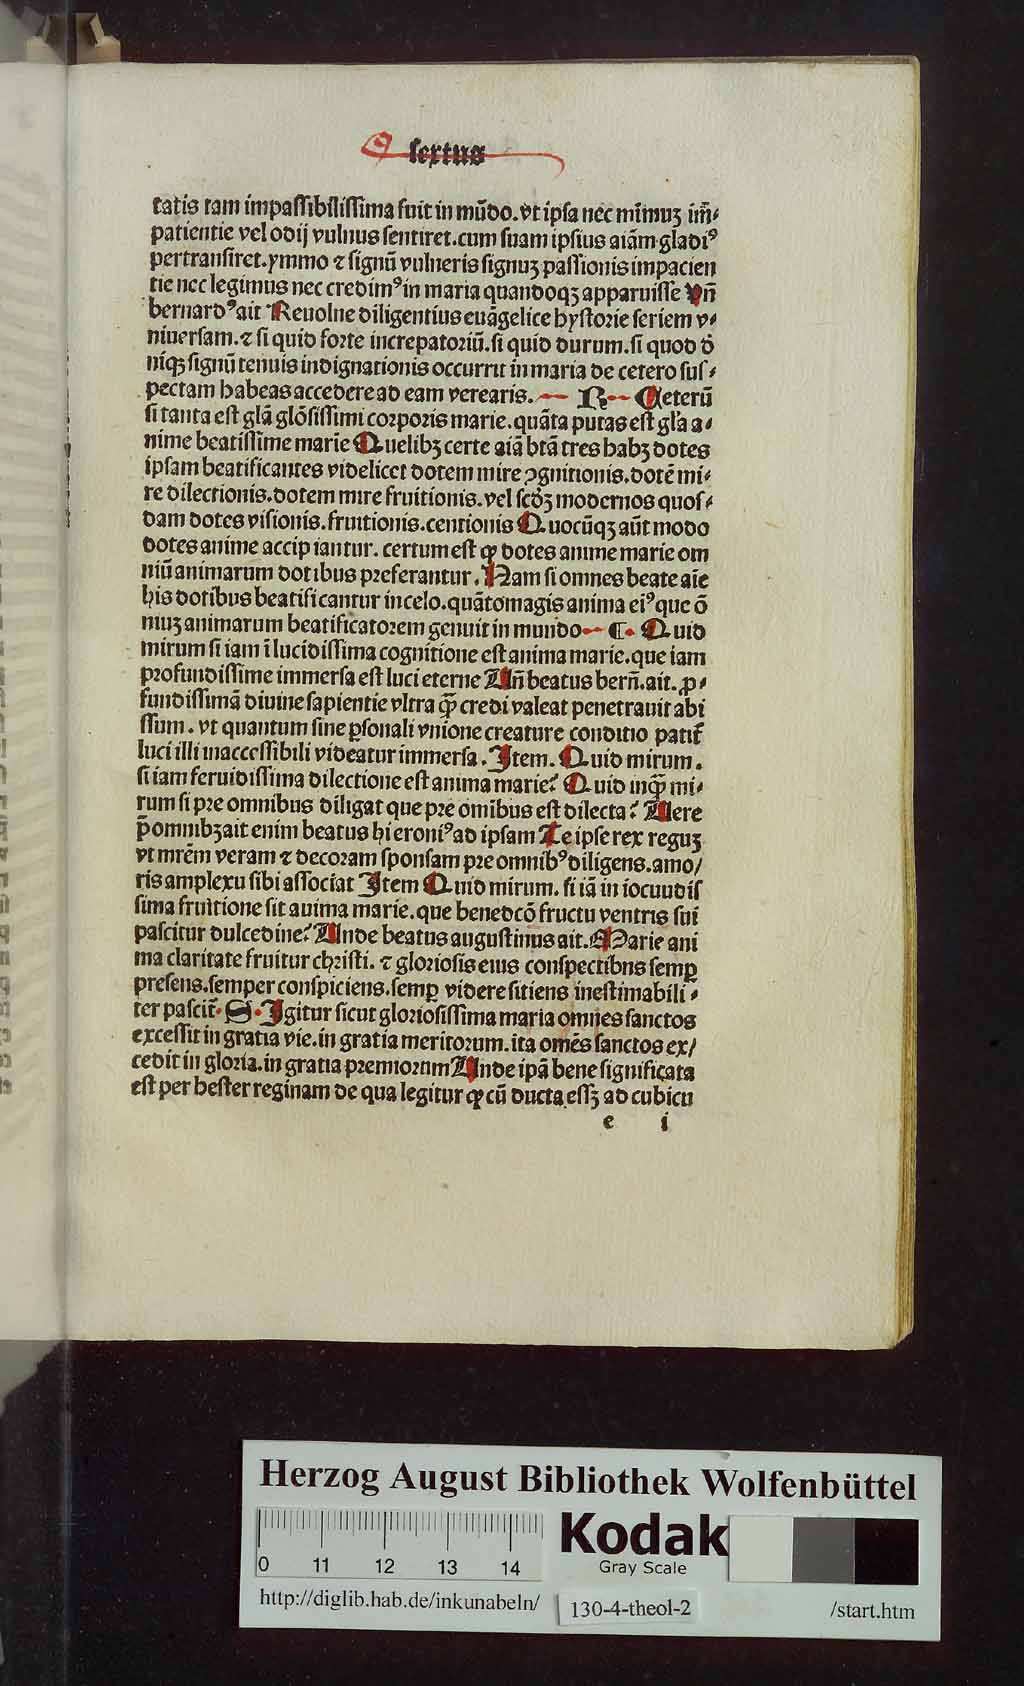 sextus
tatis tam impassibilissima fuit in mūdo. vt ipsa nec mīmuꝫ im̄⸗
patientie vel odij vulnus sentiret. cum suam ipsius aīam gladiꝰ
pertransiret. ymmo ⁊ signū vulneris signuꝫ passionis impacien
tie nec legimus nec credimꝰ in maria quandoqꝫ apparuisse Vn̄
bernardꝰ ait Reuolue diligentius euāgelice hystorie seriem v⸗
niuersam. ⁊ si quid forte increpatoriū. si quid durum. si quod dē
niqꝫ signū tenuis indignationis occurrit in maria de cetero sus⸗
pectam habeas accedere ad eam verearis. R Ceterū
si tanta est glā glōsissimi corporis marie. quāta putas est gl̄a a⸗
nime beatissime marie Quelibꝫ certe aīa btā tres habꝫ dotes
ipsam beatificantes videlicet dotem mire ꝯgnitionis. dotē mi⸗
re dilectionis. dotem mire fruitionis. vel scd̄ꝫ modernos quos⸗
dam dotes visionis. fruitionis. tentionis Quocūqꝫ aūt modo
dotes anime accip iantur. certum est ꝙ dotes anime marie om
niū animarum dotibus preferantur. Nam si omnes beate aīe
his dotibus beatificantur in celo. quāto magis anima eiꝰ que ō
niuꝫ animarum beatificatorem genuit in mundo C. Quid
mirum si iam ī lucidissima cognitione est anima marie. que iam
profundissime immersa est luci eterne Vn̄ beatus bern̄. ait. ꝓ⸗
fundissimā diuine sapientie vltra ꝙ̄ credi valeat penetrauit abi
ssum. vt quantum sine ꝑsonali vnione creature conditio patit̄
luci illi inaccessibili videatur immersa. Item. Quid mirum.
si iam feruidissima dilectione est anima marie? Quid inqͣꝫ mi⸗
rum si pre omnibus diligat que pre omībus est dilecta? Uere
p̄ omnibꝫ ait enim beatus hieroniꝰ ad ipsam Te ipse rex reguꝫ
vt mrēm veram ⁊ decoram sponsam pre omnibꝰ diligens. amo/
ris amplexu sibi associat Item Quid mirum. si iā in iocuudis
sima fruitione sit auima marie. que benedcō fructu ventris sui
pascitur dulcedine? Unde beatus augustinus ait. Marie ani
ma claritate fruitur christi. ⁊ gloriosis eius conspectibns semꝑ
presens. semper conspiciens. semꝑ videre sitiens inestimabili⸗
ter pascit̄. S. Igitur sicut gloriosissima maria omnes sanctos
excessit in gratia vie. in gratia meritorum. ita omēs sanctos ex/
cedit in gloria. in gratia premiorum Unde ipā bene significata
est per hester reginam de qua legitur ꝙ cū ducta essꝫ ad cubicu
e i
Herzog August Bibliothek Wolfenbüttel
0 11 12 13 14
Kodak
Gray Scale
http://diglib.hab.de/inkunabeln/ 130-4-theol-2 /start.htm